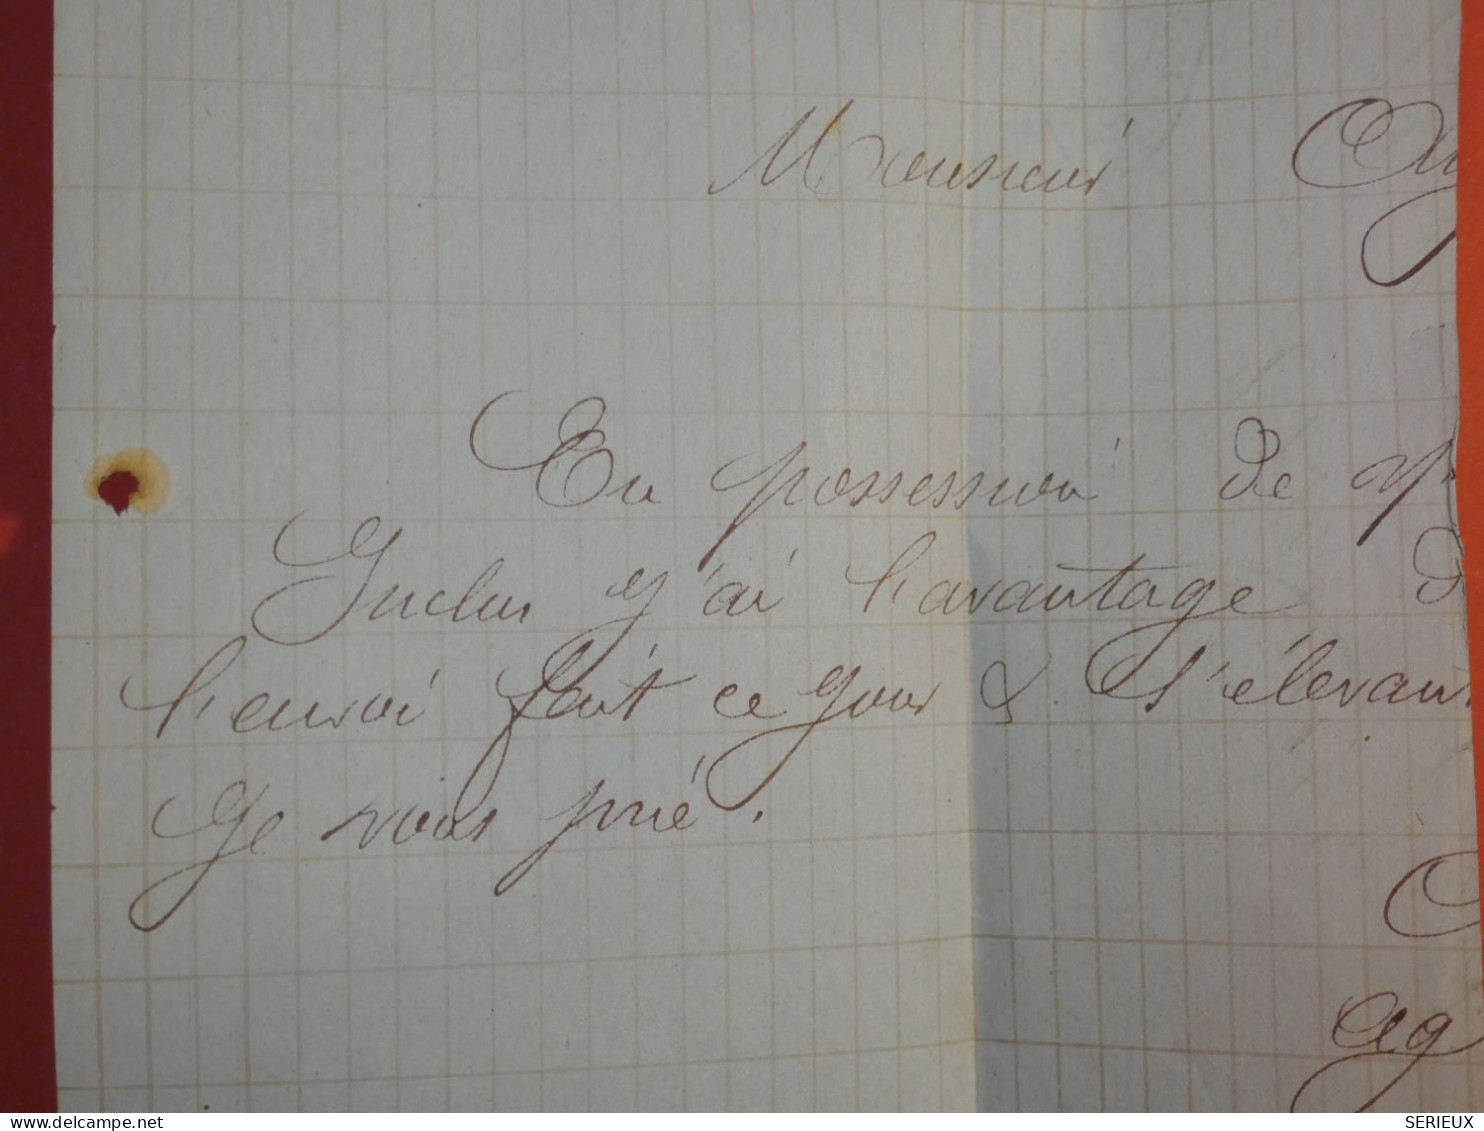 Monsieur
En possession de
Inclus j'ai l'avantage
l'envoi fait ce jour & s'élevan
Je vous prie.
ag
delcampe.net
SERIEUX